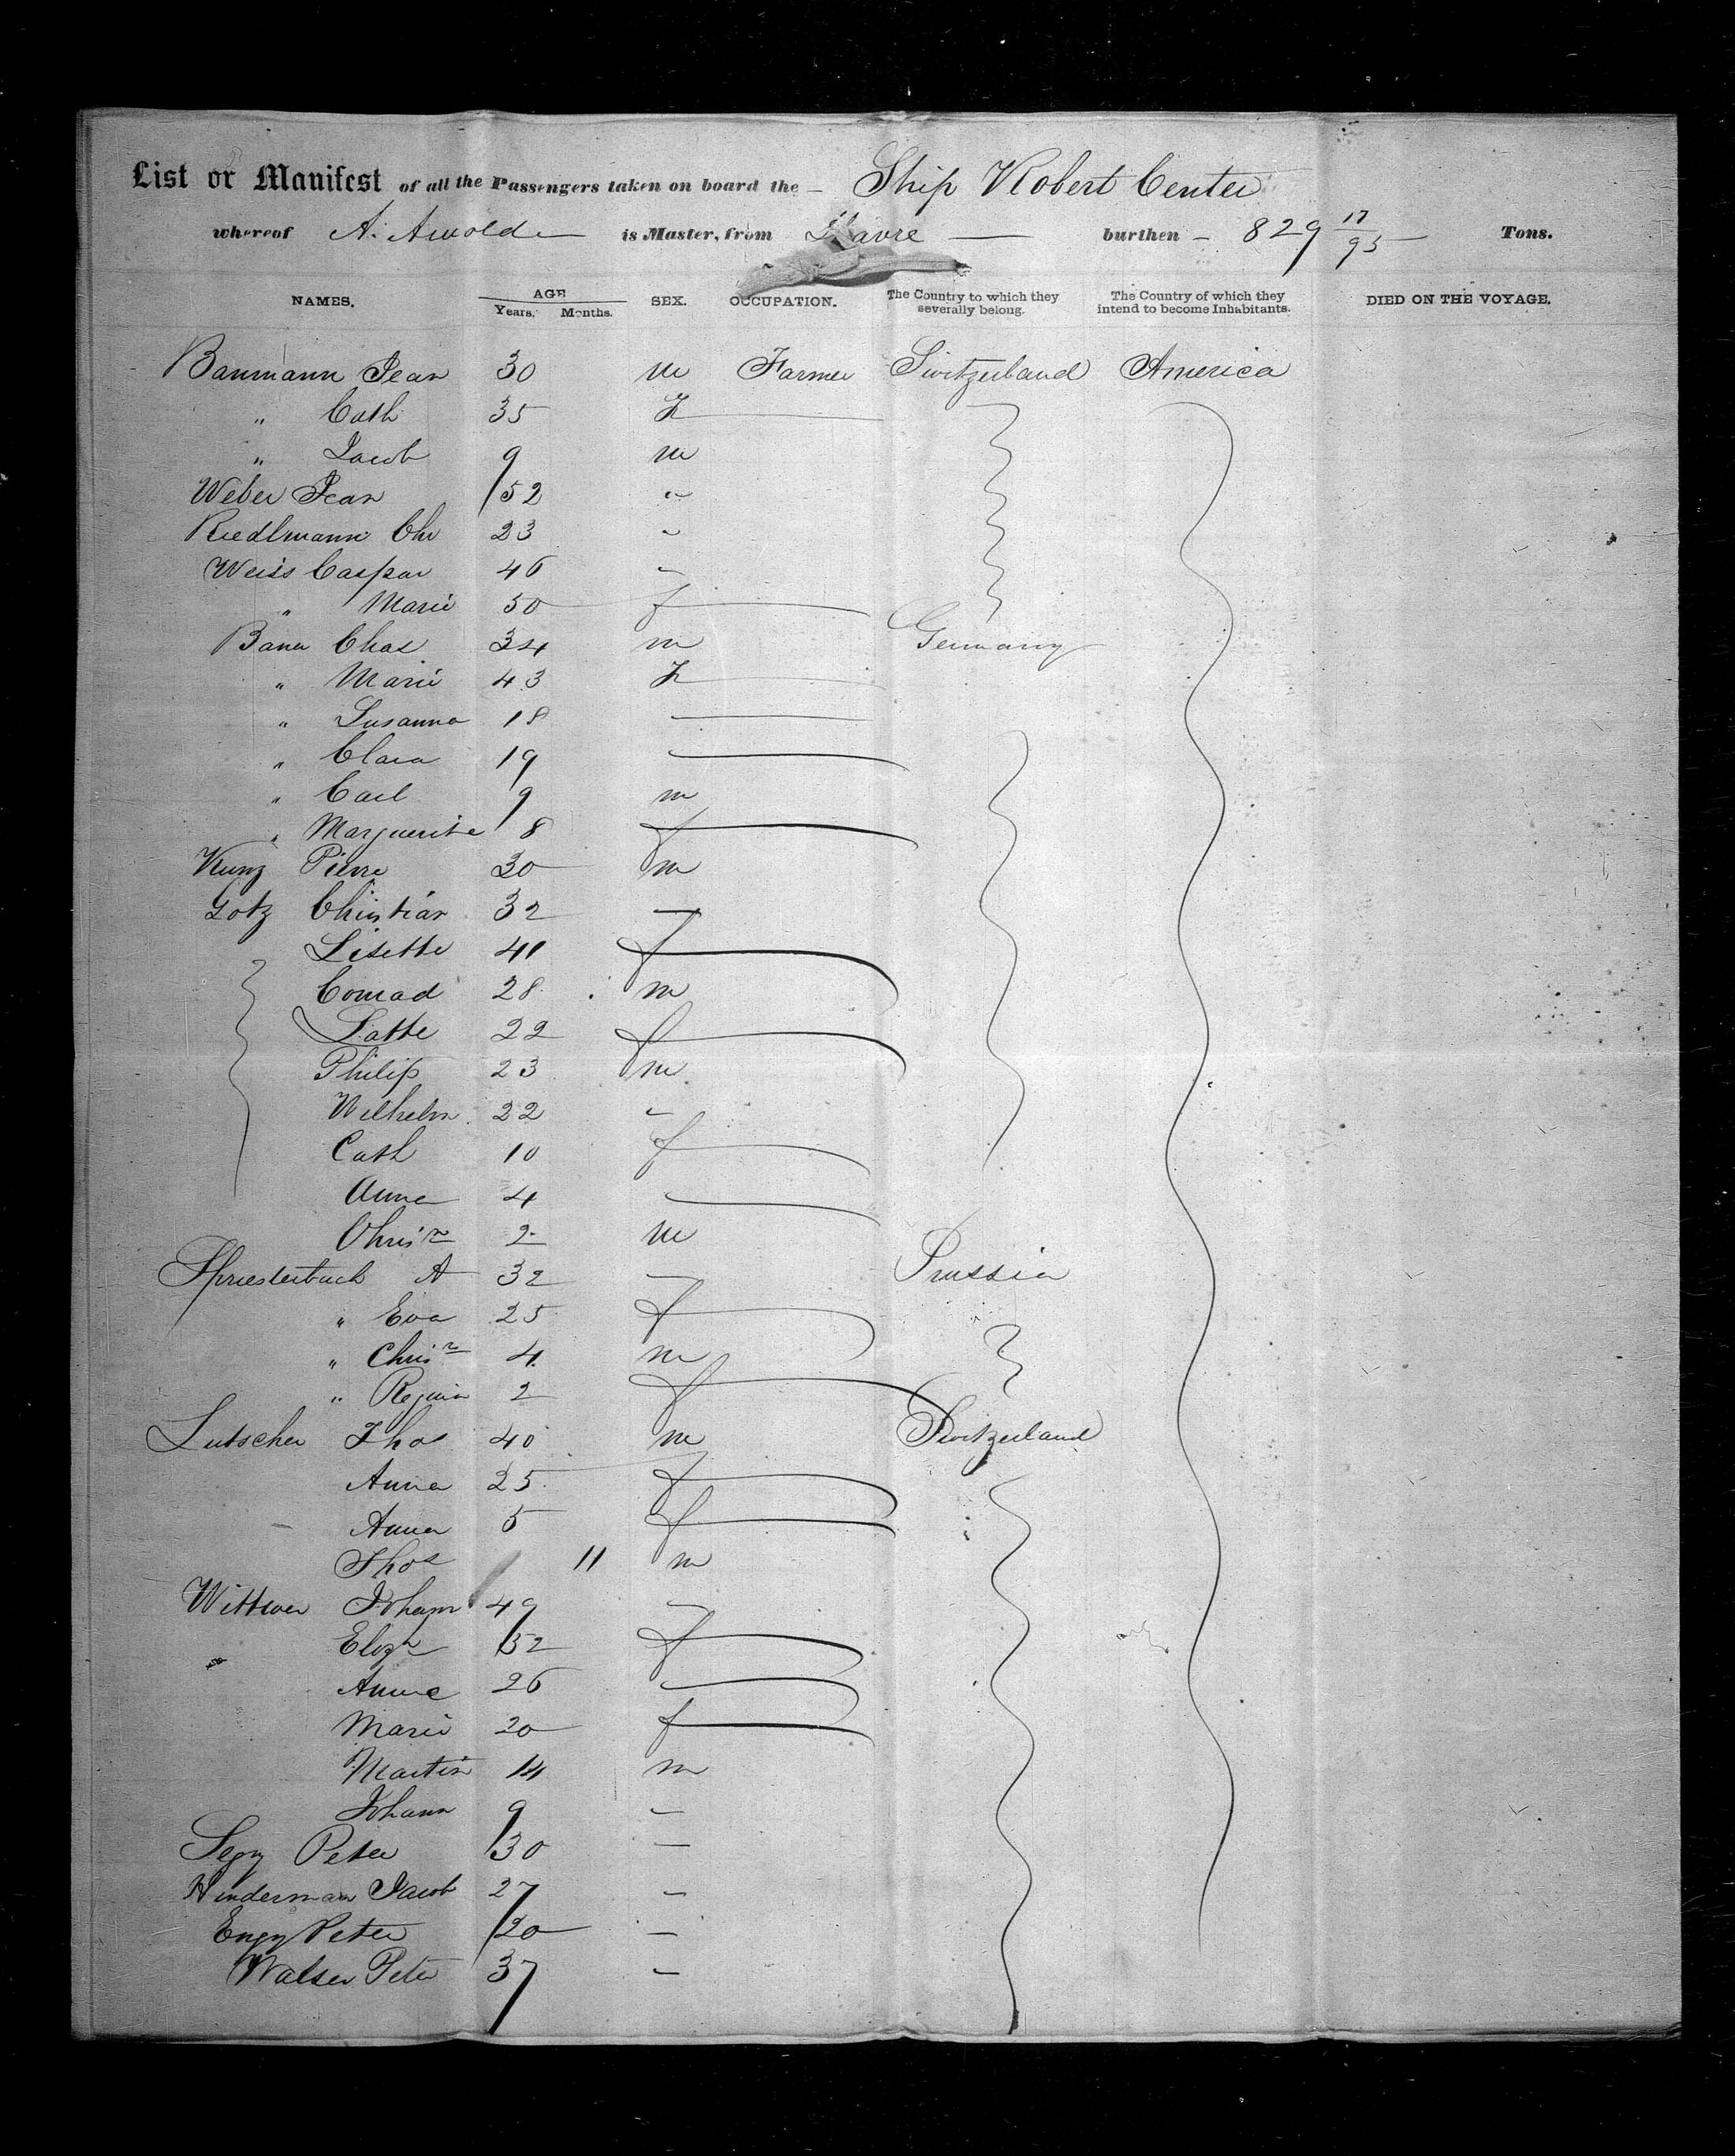 List or Manifest of all the Passengers taken on board the Ship Robert Center
whereof A. Arnold is Master, from Havre burthen 829 17/95 Tons.
NAMES. AGE Years. Months. SEX. OCCUPATION. The Country to which they severally belong. The Country of which they intend to become Inhabitants. DIED ON THE VOYAGE.
Baumann Jean 30 m Farmer Switzerland America
" Cath 35 F
" Jacob 9 m
Weber Jean 52 "
Riedlmann Chr 23 "
Weiss Caspar 46 "
" Marie 50 f
Baner Chas 34 m Germany
" Marie 43 F
" Susanna 18
" Clara 19
" Carl 9 m
" Marguerite 8 f
Kunz Pierre 30 m
Gotz Christian 32 —
Lisette 41 f
Conrad 28 m
22 f
Philip 23 m
Wilhelm 22 "
Cath 10 f
Anna 4
Chrisn 2 m
Spriesterbach A 32 — Prussia
" Eva 25 f
" Chrisn 4 m
" Regina 2 f
Lutscher Thos 40 m Switzerland
Anna 25 f
Anna 5 f
Thos 11 m
Wittwer Johann 49 —
Elizh 52 f
Anna 26
Marie 20 f
Martin 14 m
Johann 9 —
Peter 30 —
Hinderman Jacob 27 —
Peter 20 —
Walser Peter 37 —